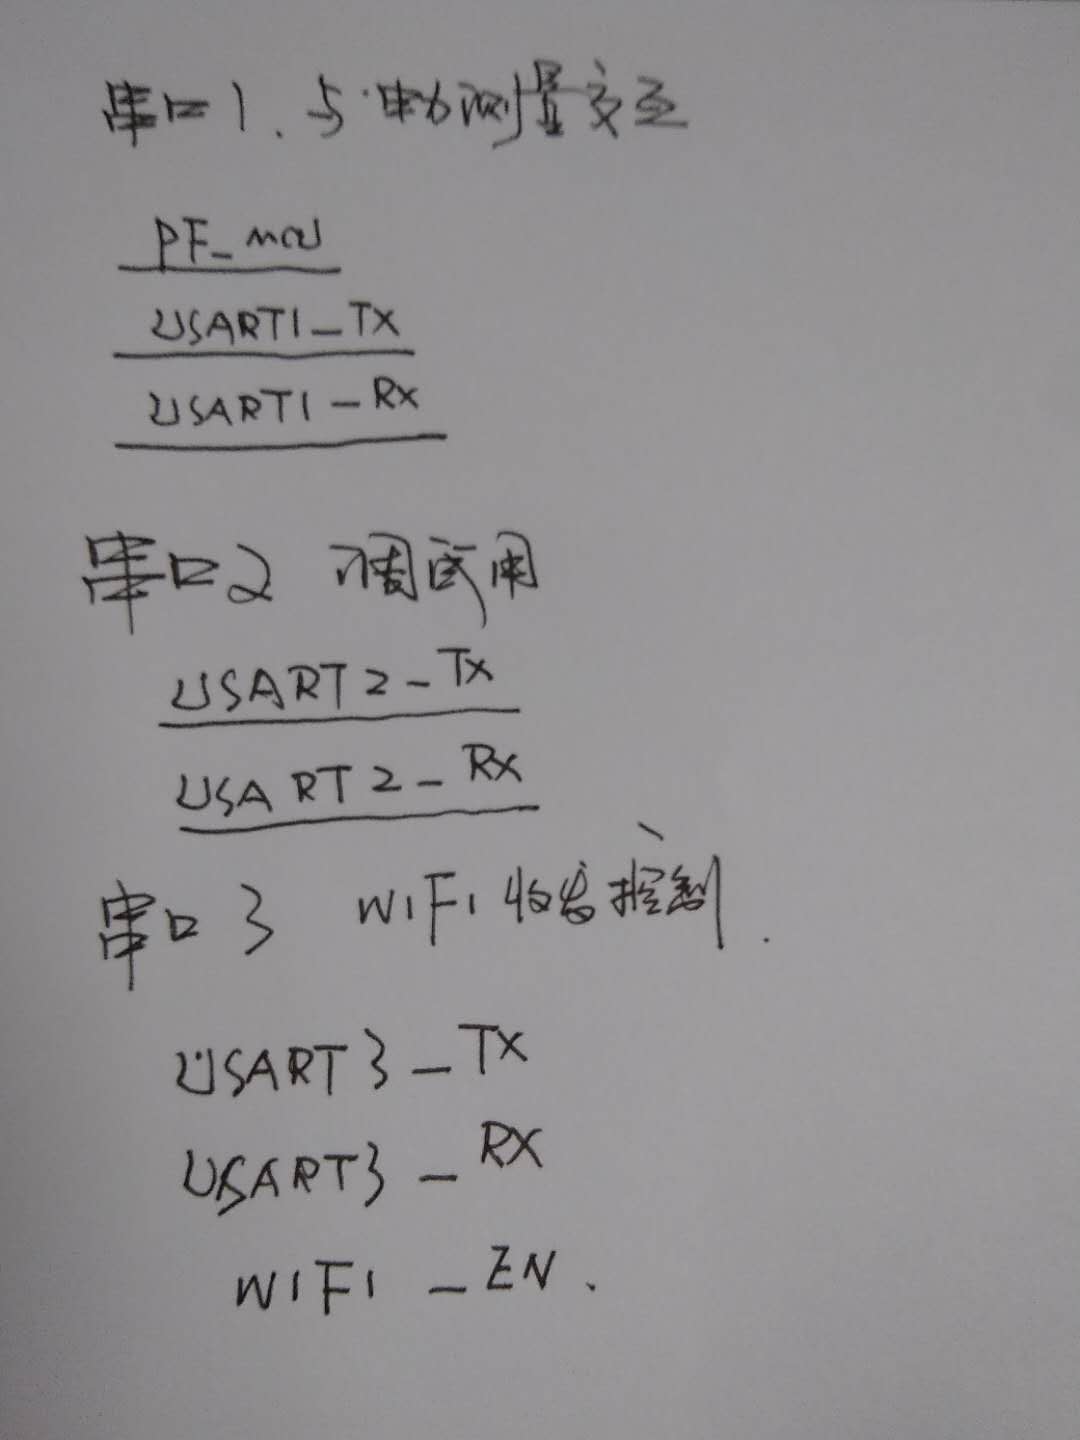 串口1、与电力测量交互
PF_mcu
USART1_TX
USART1_RX
串口2 调试用
USART2_TX
USART2_RX
串口3 WIFI 收发控制.
USART3_TX
USART3_RX
WIFI_EN.